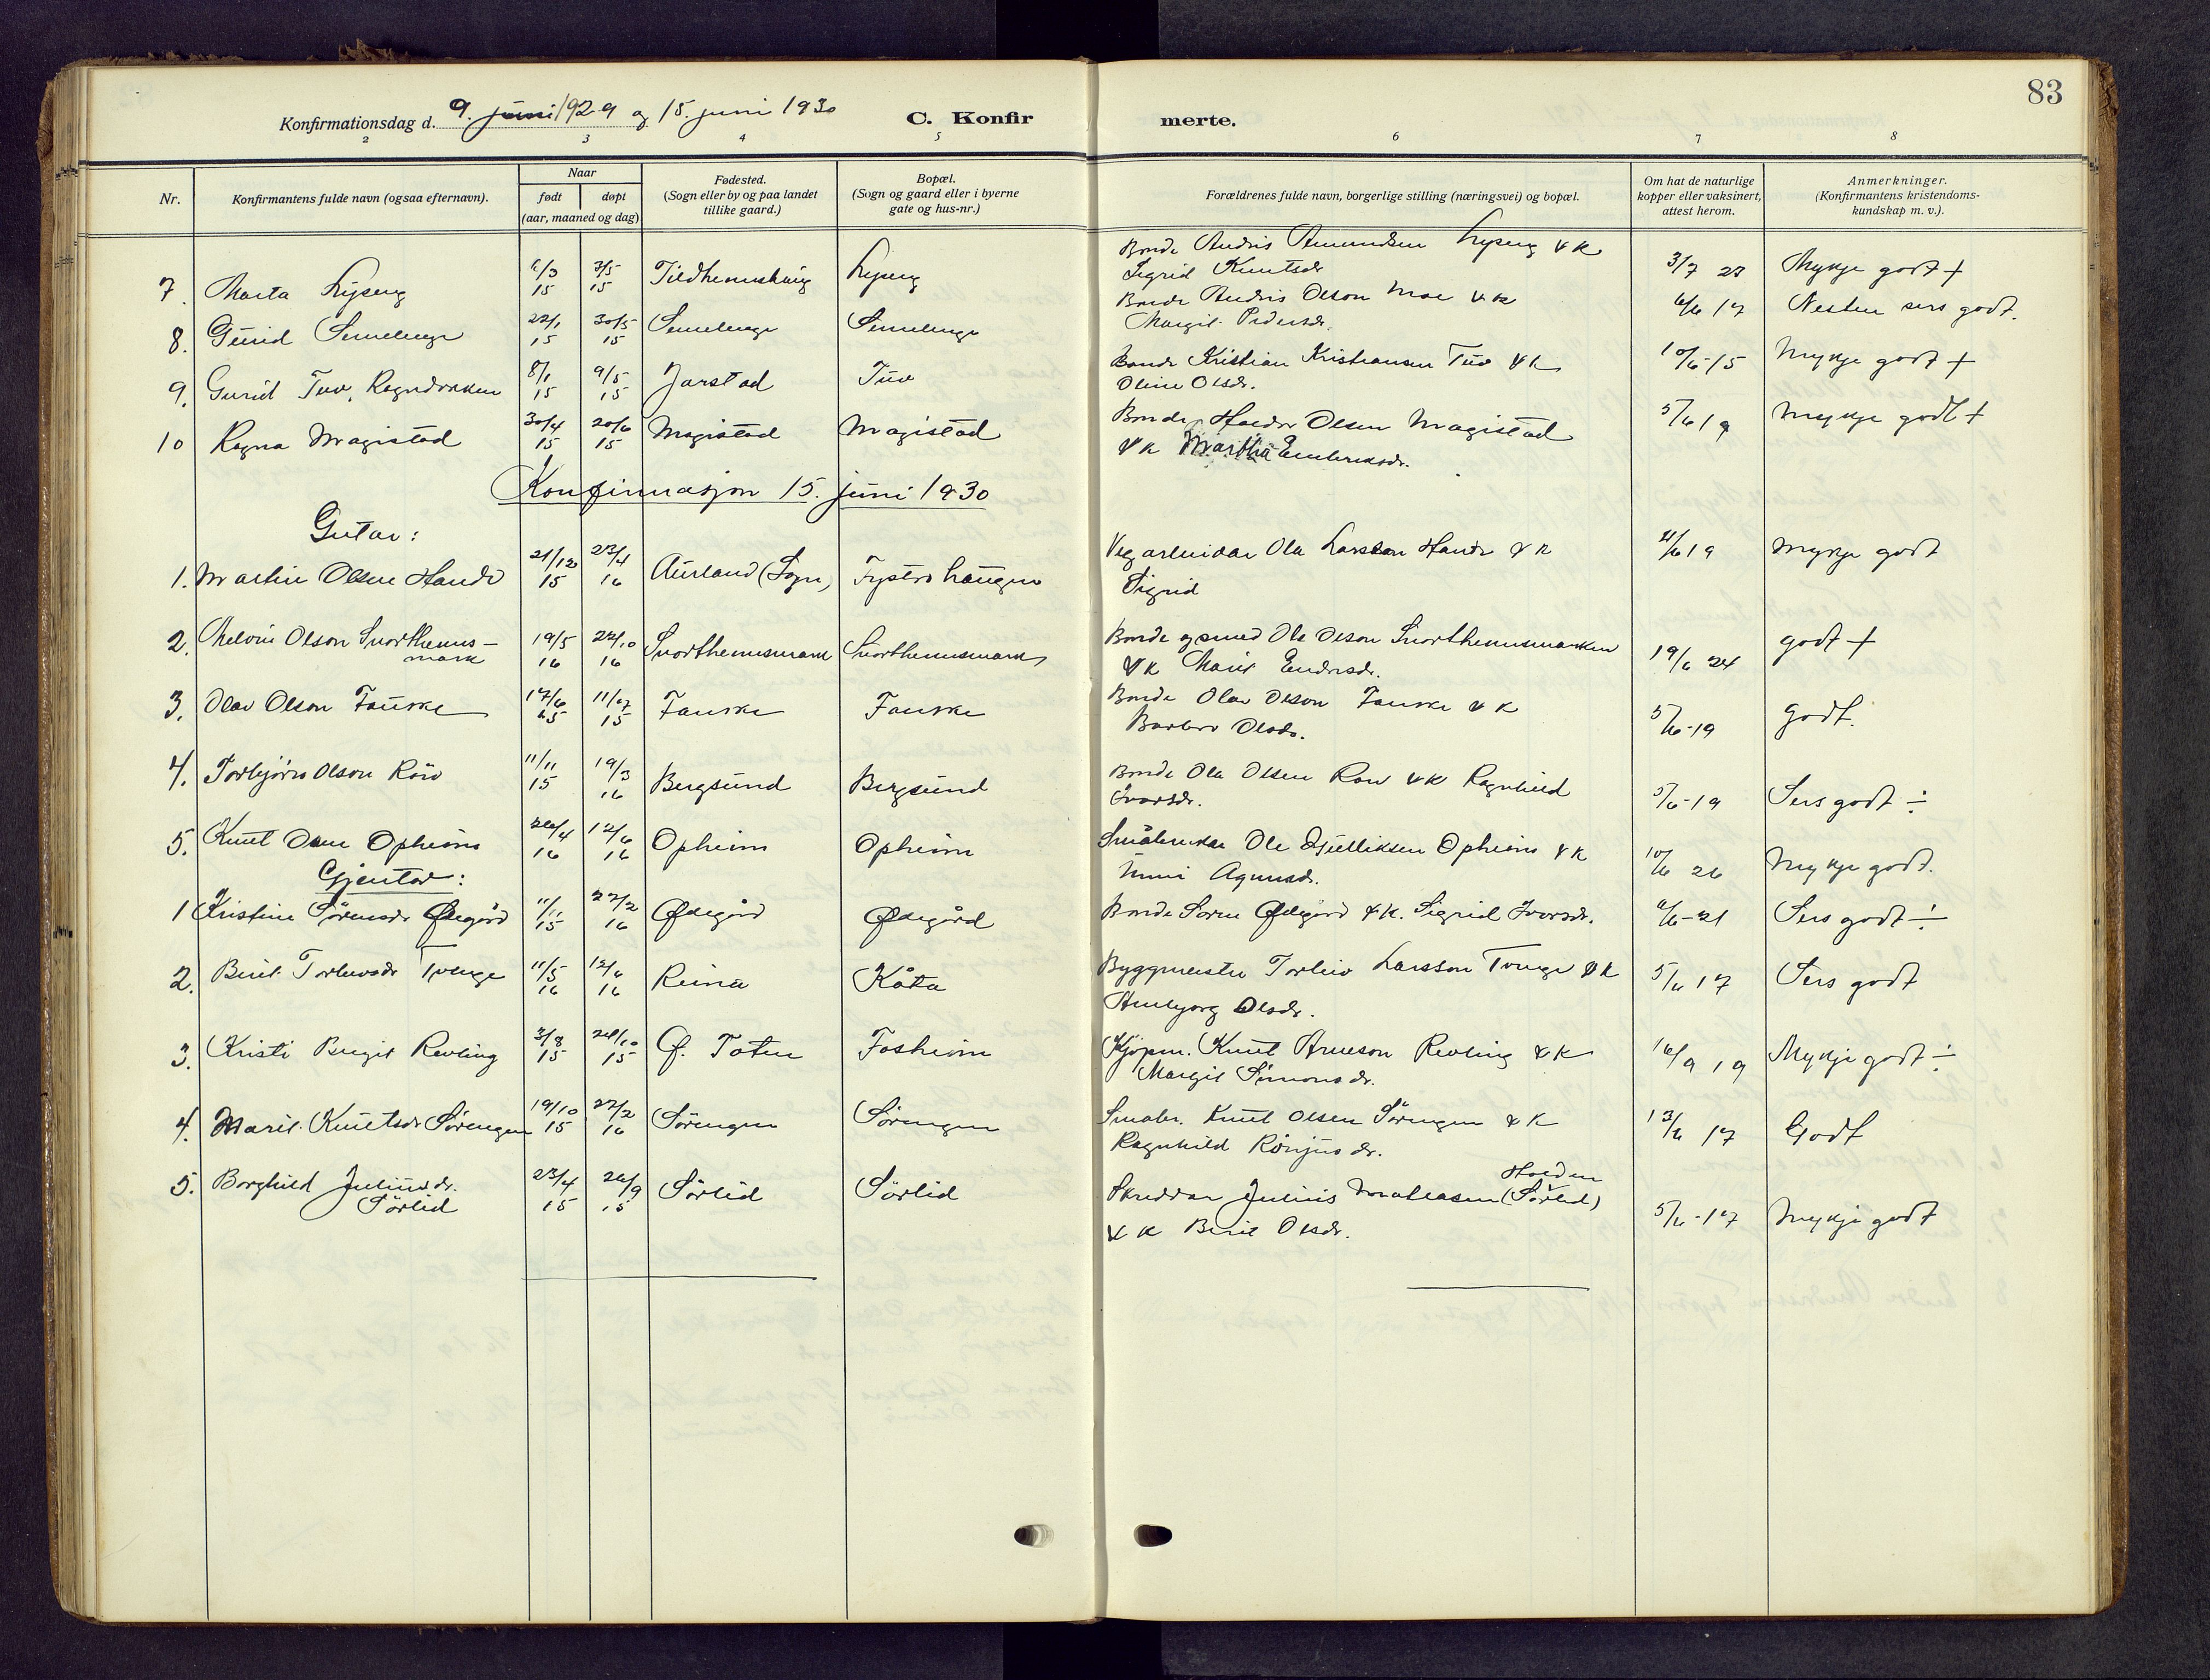 83
Konfirmationsdag d. 9. juni 1929 og 15. juni 1930 C. Konfirmerte.
2 3 4 5 6 7 8
Nr. Konfirmantens fulde navn (ogsaa efternavn). Naar født døpt (aar, maaned og dag) Fødested. (Sogn eller by og paa landet tillike gaard.) Bopæl. (Sogn og gaard eller i byerne gate og hus-nr.) Forældrenes fulde navn, borgerlige stilling (næringsvei) og bopæl. Om hat de naturlige kopper eller vaksinert, attest herom. Anmerkninger. (Konfirmantens kristendoms-kundskap m. v.).
7. Marta 15 15 Bonde Andris Amundsen & K Sigrid Knutsdr 3/7 23 Mykje godt +
8. Gurid 22/1 15 30/5 15 Bonde Andris Olson Moe & K Margit Pedersdr. 6/6 17 Nesten sers godt.
9. Gurid Tuv, 8/1 15 9/5 15 Jarstad Tuv Bonde Kristian Kristiansen Tuv & K Oline Olsdr. 10/6-15 Mykje godt +
10 Ragna Magistad 30/4 15 20/6 15 Magistad Magistad Bonde Halvor Olsen Magistad & K Martha 5/6 19 Mykje godt +
Konfirmasjon 15. juni 1930
Gutar:
1. Martin Olsen Hande 21/12 15 23/4 16 Aurland (Sogn) Vegarbeidar Ola Larsson Hande & K Sigrid 19 mykje godt
2. Melvin Olson Snorthemsmark 19/5 16 22/10 16 Snorthemsmark Snorthemsmark Bonde og smed Ole Olson Snorthemsmarken & K Marit Endresdr. 19/6 24 godt +
3. Olav Olson Fauske 17/6 15 11/7 15 Fauske Fauske Bonde Olav Olson Fauske & K Barbro Olsdr. 5/6-19 Godt.
4. Torbjörn Olson 11/11 15 19/3 16 Bergsund Bergsund Bonde Ola Olsen & K Ragnhild Ivarsdr. 5/6-19 Sers godt ÷
5. Knut Olsen Opheim 26/4 16 12/6 16 Opheim Opheim Småbrukar Ole Gulliksen Opheim & K 10/6 26 Mykje godt.
Gjentor:
1 Kristine Sörensdr Ødegård 11/11 15 27/2 16 Ødegård Ødegård Bonde Sören Ødegård & K. Sigrid Ivarsdr. 6/6-21 Sers godt ÷
2. Berit Torleivsdr Tvenge 11/5 16 12/6 16 Reina Kåta Byggmeister Torleiv Larsson Tvenge & K Olsdr. 5/6 17 Sers godt
3. Kristi Bergit Revling 3/8 15 24/10 15 Ø. Toten Fosheim Kjöpm. Knut Arneson Revling & K Margit Simonsdr. 16/9 19 Mykje godt ÷
4. Marit Knutsdr Sörengen 19/10 15 27/2 16 Sörengen Sörengen Småbr. Knut Olsen Sörengen & K Ragnhild 13/6 17 Godt
5. Borghild Juliusdr. Sörlid 23/4 15 26/9 15 Sörlid Sörlid Skreddar Julius Mathiasen (Sörlid) & K Berit Olsdr. 5/6-17 Mykje godt